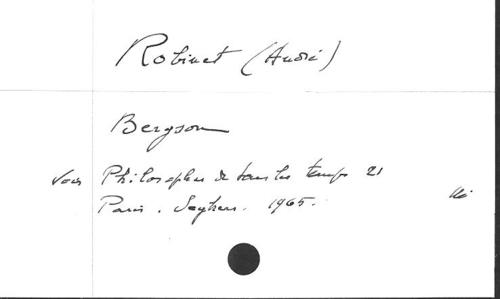 Robinet (André)
Bergson
Voir Philosophes de tous les temps 21
Paris. Seghers. 1965.